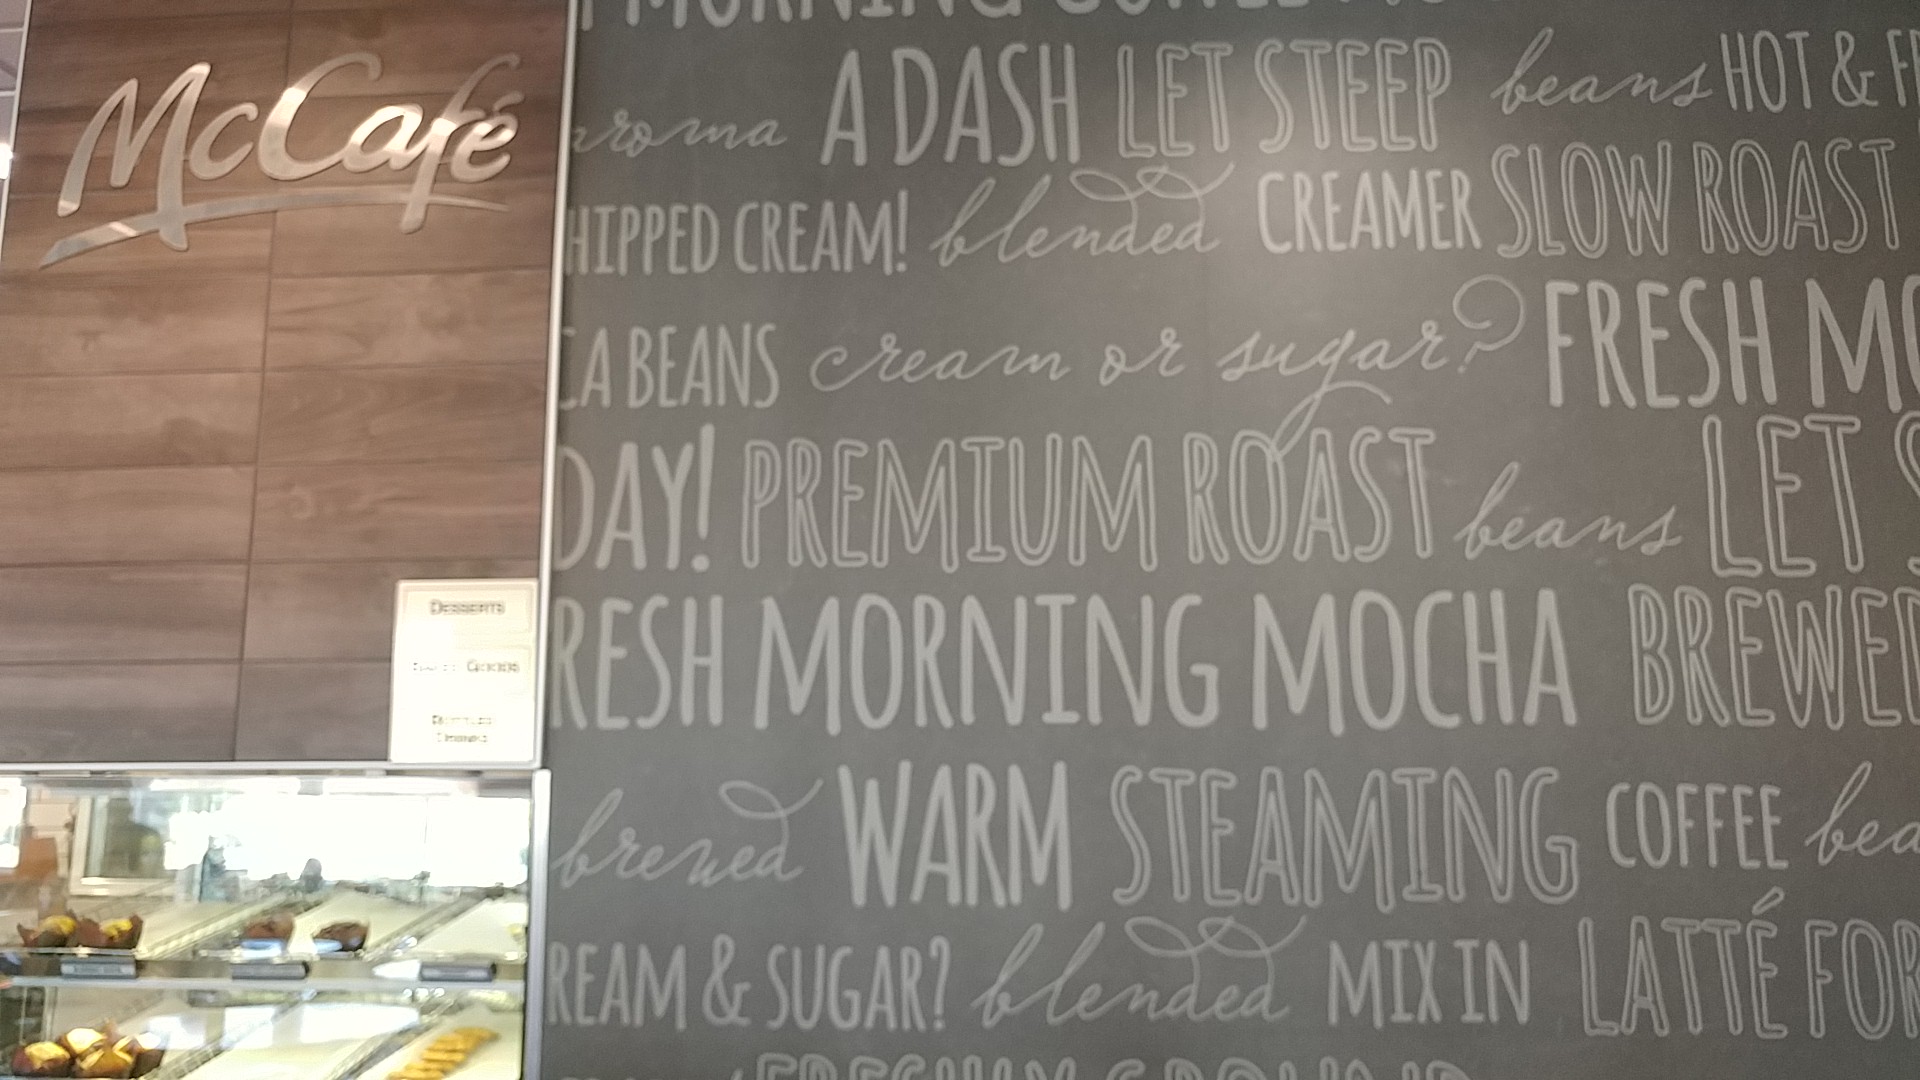 McCafé
DESSERTS
MORNING
aroma A DASH LET STEEP beans HOT &
HIPPED CREAM! blended CREAMER SLOW ROAST
CA BEANS cream or sugar? FRESH MO
DAY! PREMIUM ROAST beans LET S
RESH MORNING MOCHA BREWED
brewed WARM STEAMING COFFEE bea
REAM & SUGAR? blended MIX IN LATTÉ FOR
FRESHLY GROUND